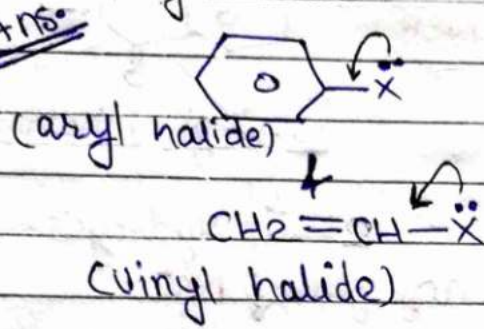 Ans.
X
(aryl halide)
CH2=CH-Ẍ
(vinyl halide)